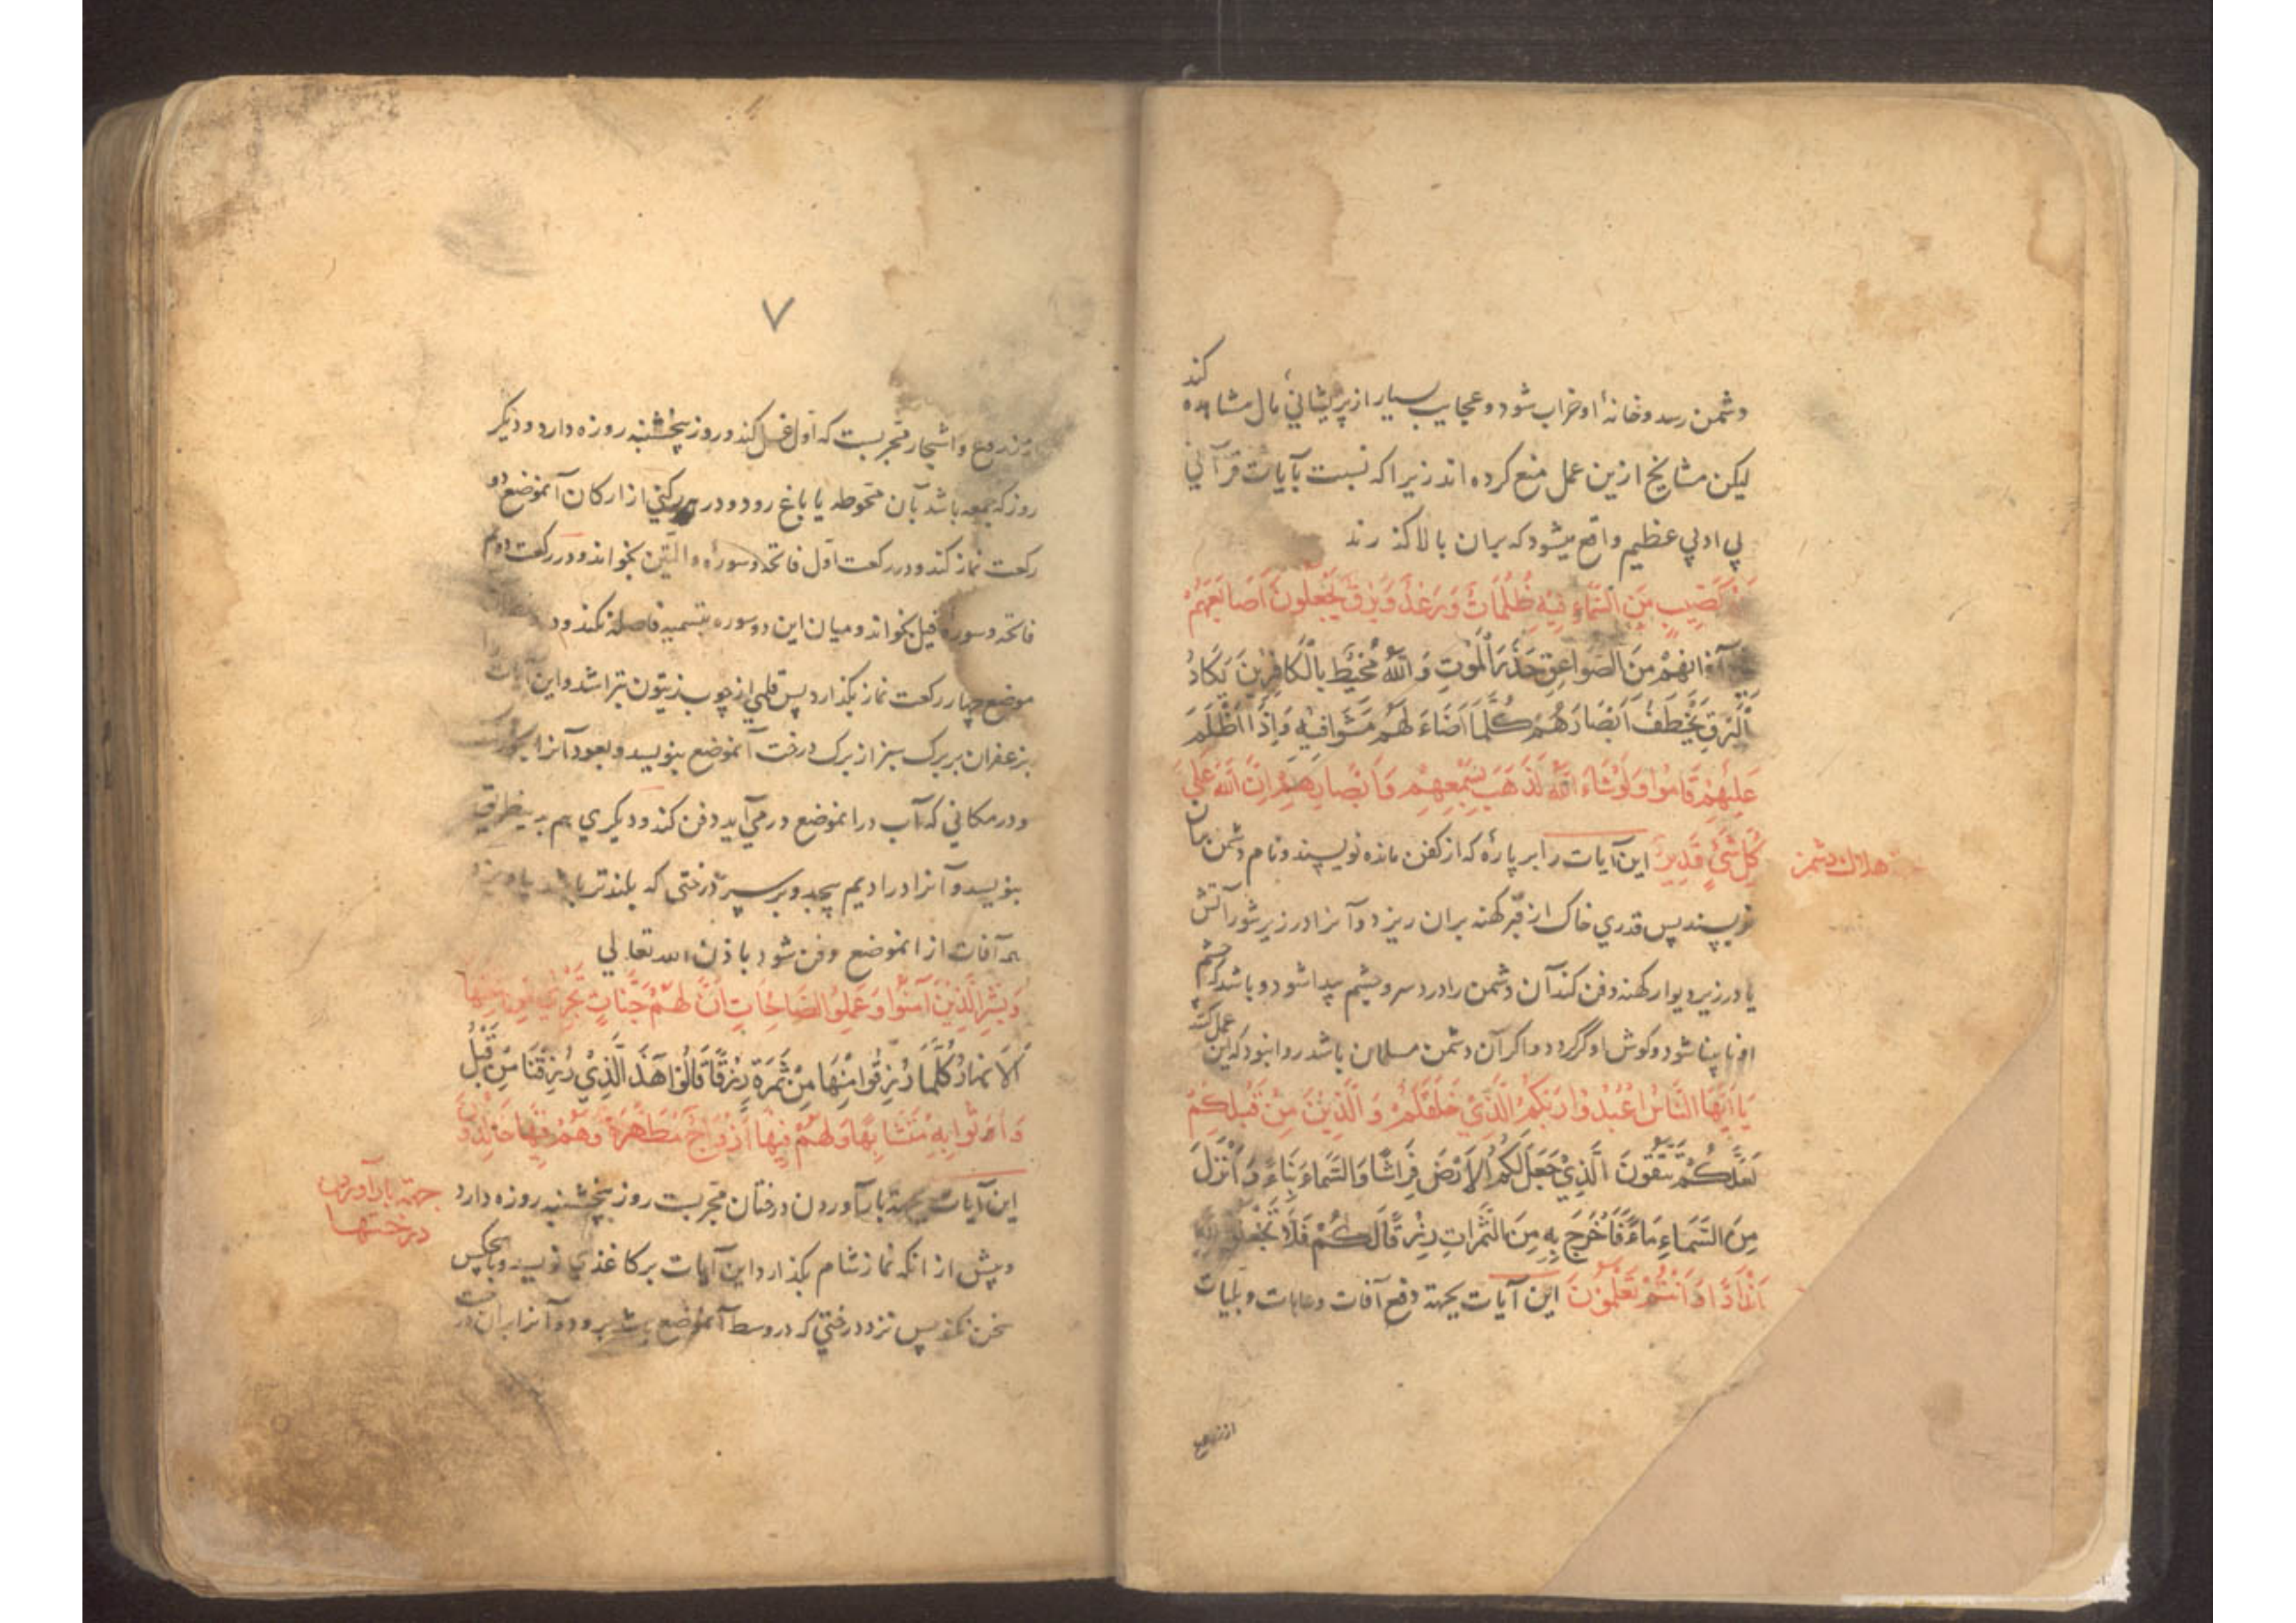 دشمن رسد و خانهٔ او خراب شود و عجایب بسیار از پریشانی مال مشاهده کند
لیکن مشایخ ازین عمل منع کرده اند زیرا که نسبت بآیات قرآنی
بی ادبی عظیم واقع میشود که بران بالا گذرند
كَصَيِّبٍ مِنَ السَّمَاءِ فِيهِ ظُلُمَاتٌ وَرَعْدٌ وَبَرْقٌ يَجْعَلُونَ أَصَابِعَهُمْ
آذَانِهِمْ مِنَ الصَّوَاعِقِ حَذَرَ الْمَوْتِ وَاللهُ مُحِيطٌ بِالْكَافِرِينَ يَكَادُ
الْبَرْقُ يَخْطَفُ أَبْصَارَهُمْ كُلَّمَا أَضَاءَ لَهُمْ مَشَوْا فِيهِ وَإِذَا أَظْلَمَ
عَلَيْهِمْ قَامُوا وَلَوْ شَاءَ اللهُ لَذَهَبَ بِسَمْعِهِمْ وَأَبْصَارِهِمْ إِنَّ اللهَ عَلَى
كُلِّ شَيْءٍ قَدِيرٌ این آیات را بر پارهٔ که از کفن مانده نویسند و نام دشمن بران
هلاك دشمن
نویسند پس قدری خاک از قبر کهنه بران ریزد و آنرا در زیر شور آتش
یا در زیر دیوار کهنه دفن کند آن دشمن را درد سر و چشم پیدا شود و باشد که چشم
او نابینا شود و کوش او کر گردد و اگر آن دشمن مسلمان باشد روا نبود که این عمل کند
يَا أَيُّهَا النَّاسُ اعْبُدُوا رَبَّكُمُ الَّذِي خَلَقَكُمْ وَالَّذِينَ مِنْ قَبْلِكُمْ
لَعَلَّكُمْ تَتَّقُونَ الَّذِي جَعَلَ لَكُمُ الْأَرْضَ فِرَاشًا وَالسَّمَاءَ بِنَاءً وَأَنْزَلَ
مِنَ السَّمَاءِ مَاءً فَأَخْرَجَ بِهِ مِنَ الثَّمَرَاتِ رِزْقًا لَكُمْ فَلَا تَجْعَلُوا
أَنْدَادًا وَأَنْتُمْ تَعْلَمُونَ این آیات بجهة دفع آفات و عاهات و بلیات
از زروع
۷
از زروع و اشجار مجربست که اول غسل کند و روز پنجشنبه روزه دارد و دیگر
روز که جمعه باشد بآن محوطه یا باغ رود و در هر رکنی از ارکان آنموضع دو
رکعت نماز کند و در رکعت اول فاتحه و سوره والتین بخواند و در رکعت دوم
فاتحه و سورهٔ فیل بخواند و میان این دو سوره بتسمیه فاصله نکند و در
موضع چهار رکعت نماز بگذارد پس قلمی از چوب زیتون بتراشد و این آیات
بزعفران بر برک سبز از برک درخت آنموضع بنویسد و بعود آنرا بخور
و در مکانی که آب در آنموضع در می آید دفن کند و دیکری هم بدینطریق
بنویسد و آنرا در ادیم پیچد و بر سر درختی که بلندتر باشد بیاویزد
همه آفات از انموضع دفن شود باذن الله تعالی
وَبَشِّرِ الَّذِينَ آمَنُوا وَعَمِلُوا الصَّالِحَاتِ أَنَّ لَهُمْ جَنَّاتٍ تَجْرِي مِنْ تَحْتِهَا
الْأَنْهَارُ كُلَّمَا رُزِقُوا مِنْهَا مِنْ ثَمَرَةٍ رِزْقًا قَالُوا هَذَا الَّذِي رُزِقْنَا مِنْ قَبْلُ
وَأُتُوا بِهِ مُتَشَابِهًا وَلَهُمْ فِيهَا أَزْوَاجٌ مُطَهَّرَةٌ وَهُمْ فِيهَا خَالِدُونَ
این آیات بجهة بار آوردن درختان مجربست روز پنجشنبه روزه دارد
جهة بار آوردن
درختها
و پیش از انکه نماز شام بگذارد این آیات بر کاغذی نویسد و با هیچکس
سخن نکند پس نزد درختی که در وسط آنموضع باشد برود و آنرا بران درخت